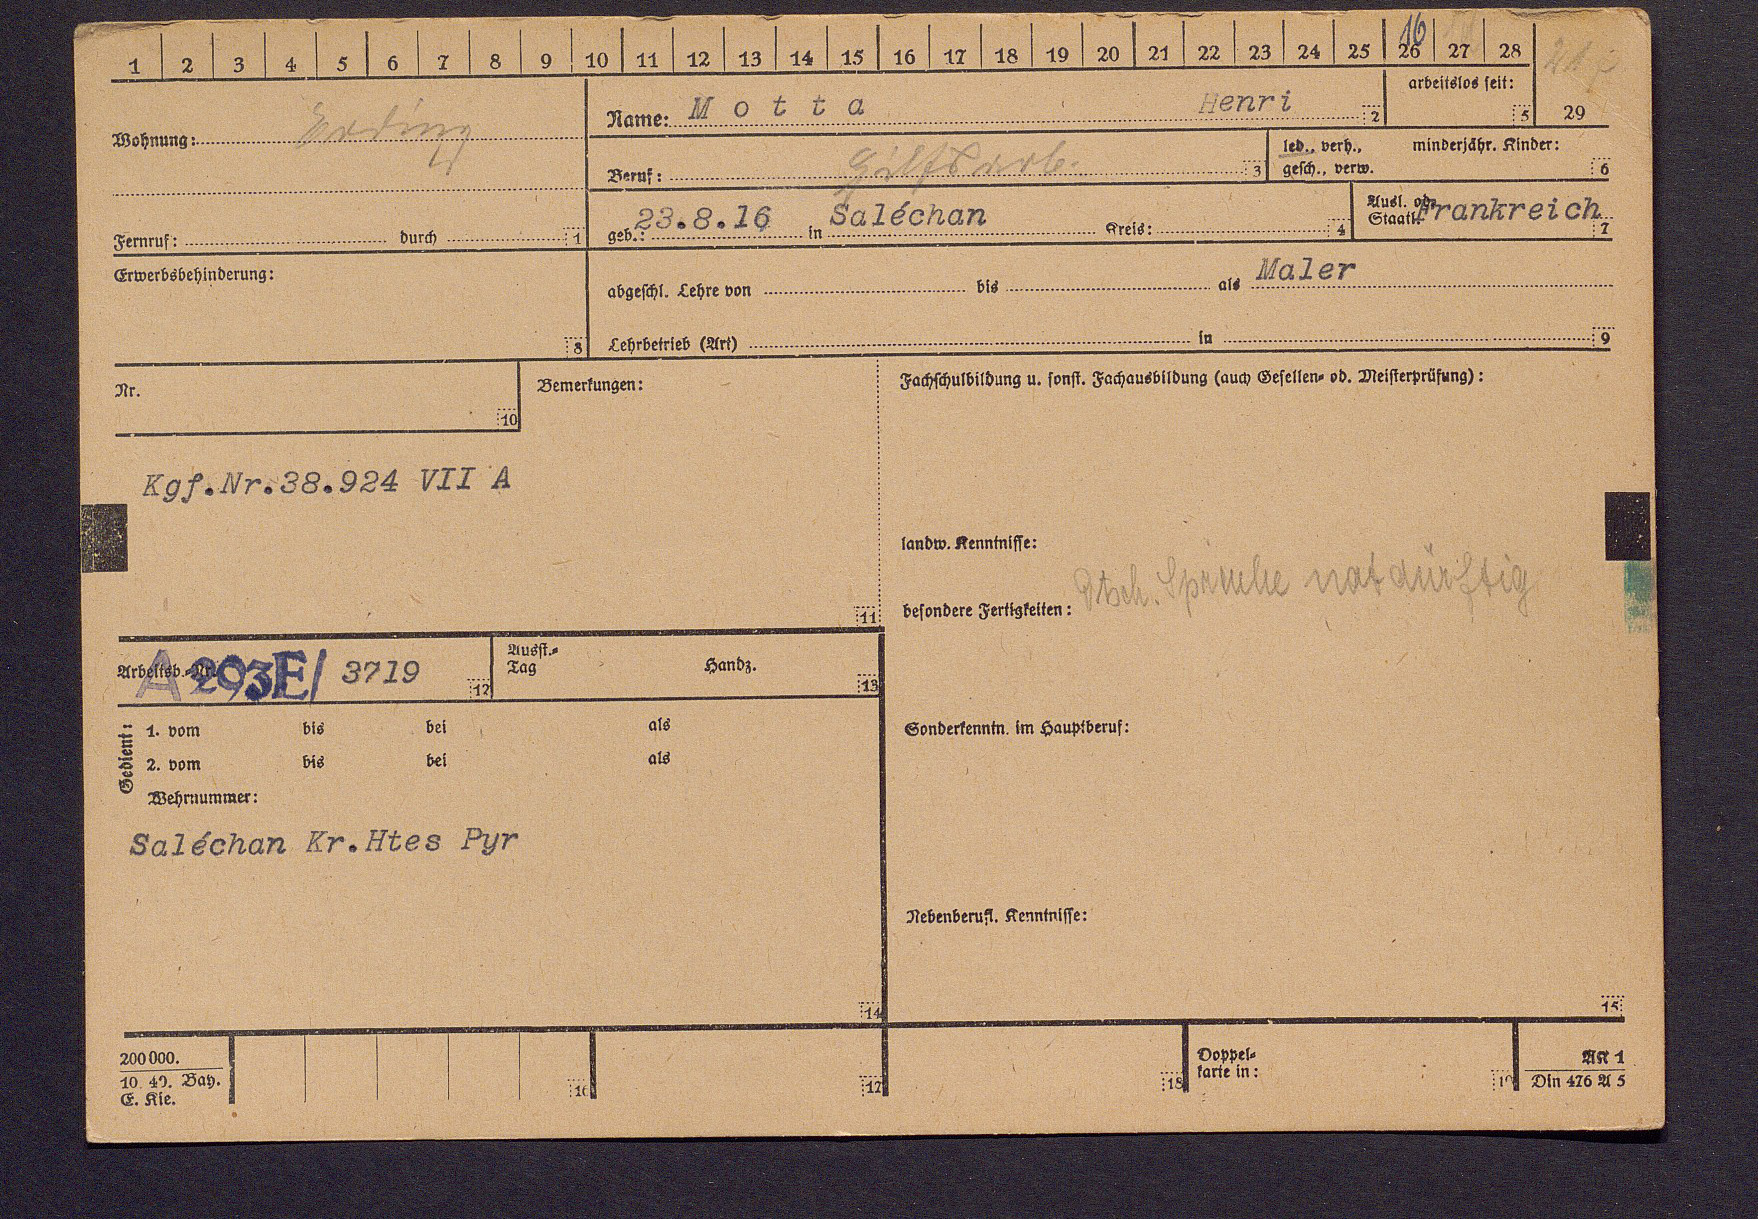 1 2 3 4 5 6 7 8 9 10 11 12 13 14 15 16 17 18 19 20 21 22 23 24 25 26 27 28
16
arbeitslos seit:
5
29
Wohnung: Erding
Name: Motta Henri 2
Beruf: Hilfsarb. 3
led., verh., minderjähr. Kinder:
gesch., verw. 6
Fernruf: durch 1
geb.: 23.8.16 in Saléchan Kreis: 4
Ausl. od.
Staatl. Frankreich
7
Erwerbsbehinderung:
8
abgeschl. Lehre von bis als Maler
Lehrbetrieb (Art) in 9
Nr.
10
Bemerkungen:
Fachschulbildung u. sonst. Fachausbildung (auch Gesellen- od. Meisterprüfung):
Kgf.Nr.38.924 VII A
11
landw. Kenntnisse:
besondere Fertigkeiten: Dtsch. Sprache notdürftig
Arbeitsb.-Nr. A 293E/ 3719 12
Ausst.-
Tag Handz.
13
Gedient:
1. vom bis bei als
2. vom bis bei als
Wehrnummer:
Sonderkenntn. im Hauptberuf:
Saléchan Kr.Htes Pyr
14
Nebenberufl. Kenntnisse:
15
200 000.
10. 40. Bay.
E. Kie.
16
17
18
Doppel-
karte in:
19
AK 1
Din 476 A 5